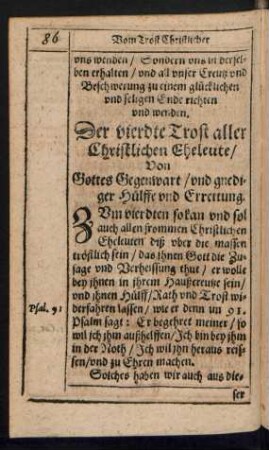 86
Vom Trost Christlicher
vns wenden / Sondern vns in dersel-
ben erhalten / vnd all vnser Creutz vnd
Beschwerung zu einem glücklichen
vnd seligen Ende richten
vnd wenden.
Der vierdte Trost aller
Christlichen Eheleute /
Von
Gottes Gegenwart / vnd gnedi-
ger Hülffe vnd Errettung.
ZVm vierdten so kan vnd sol
auch allen frommen Christlichen
Eheleuten diß vber die massen
tröstlich sein / das ihnen Gott die Zu-
sage vnd Verheissung thut / er wolle
bey ihnen in ihrem Haußcreutze sein /
vnd ihnen Hülff / Rath vnd Trost wi-
derfahren lassen / wie er denn im 91.
Psal. 91
Psalm sagt: Er begehret meiner / so
wil ich ihm außhelffen / Ich bin bey ihm
in der Noth / Ich wil ihn heraus reis-
sen / vnd zu Ehren machen.
Solches haben wir auch aus die-
ser